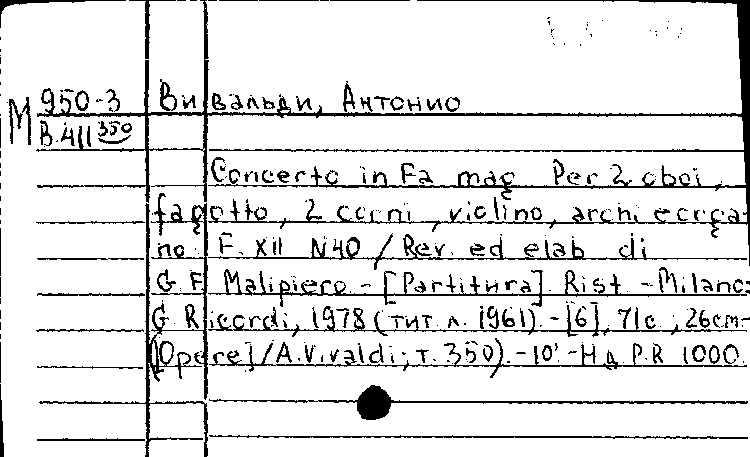 М 950-3 Вивальди, Антонио
В.411 350
Concerto in Fa mag Per 2 oboi,
fagotto, 2 corni, violino, archi e orga-
no. F. XII N40 / Rev. ed elab di
G F Malipiero - [Partitura]. Rist - Milano:
G Ricordi, 1978 (тит л. 1961) - [6], 71с ; 26cm-
(Opere] / A.Vivaldi; т. 350). - 10' - Н д P.R 1000.